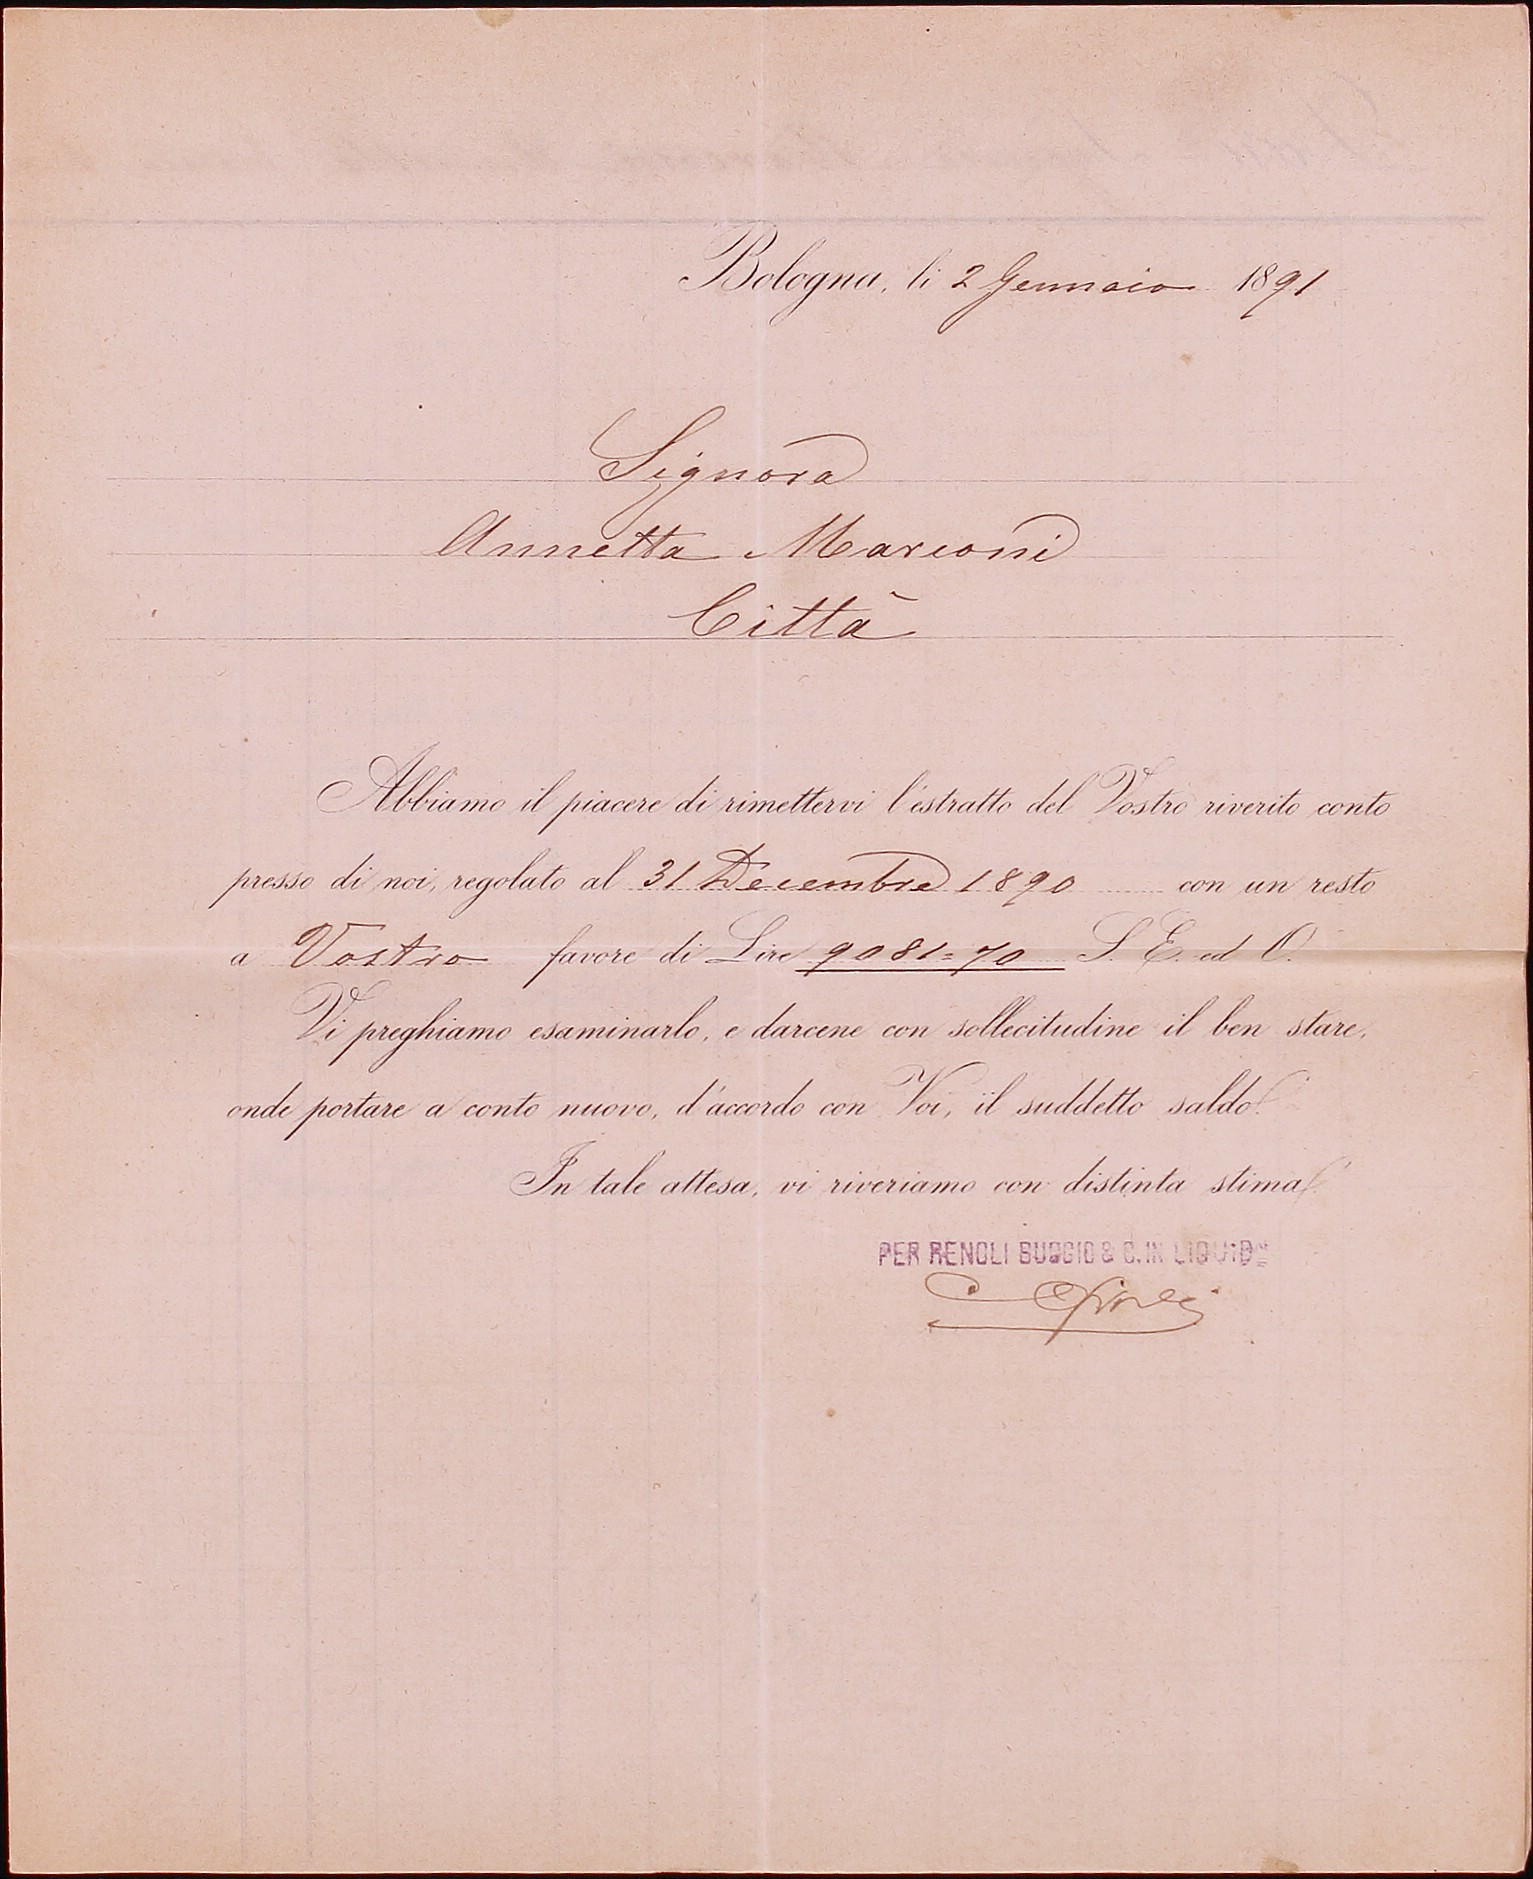 Bologna, li 2 Gennaio 1891
Signora
Annetta Marconi
Città
Abbiamo il piacere di rimettervi l'estratto del Vostro riverito conto
presso di noi, regolato al 31 Decembre 1890 con un resto
a Vostro favore di Lire 9081=70 S. E. ed O.
Vi preghiamo esaminarlo, e darcene con sollecitudine il ben stare,
onde portare a conto nuovo, d'accordo con Voi, il suddetto saldo.
In tale attesa, vi riveriamo con distinta stima.
PER RENOLI BUGGIO & C. IN LIQUIDne